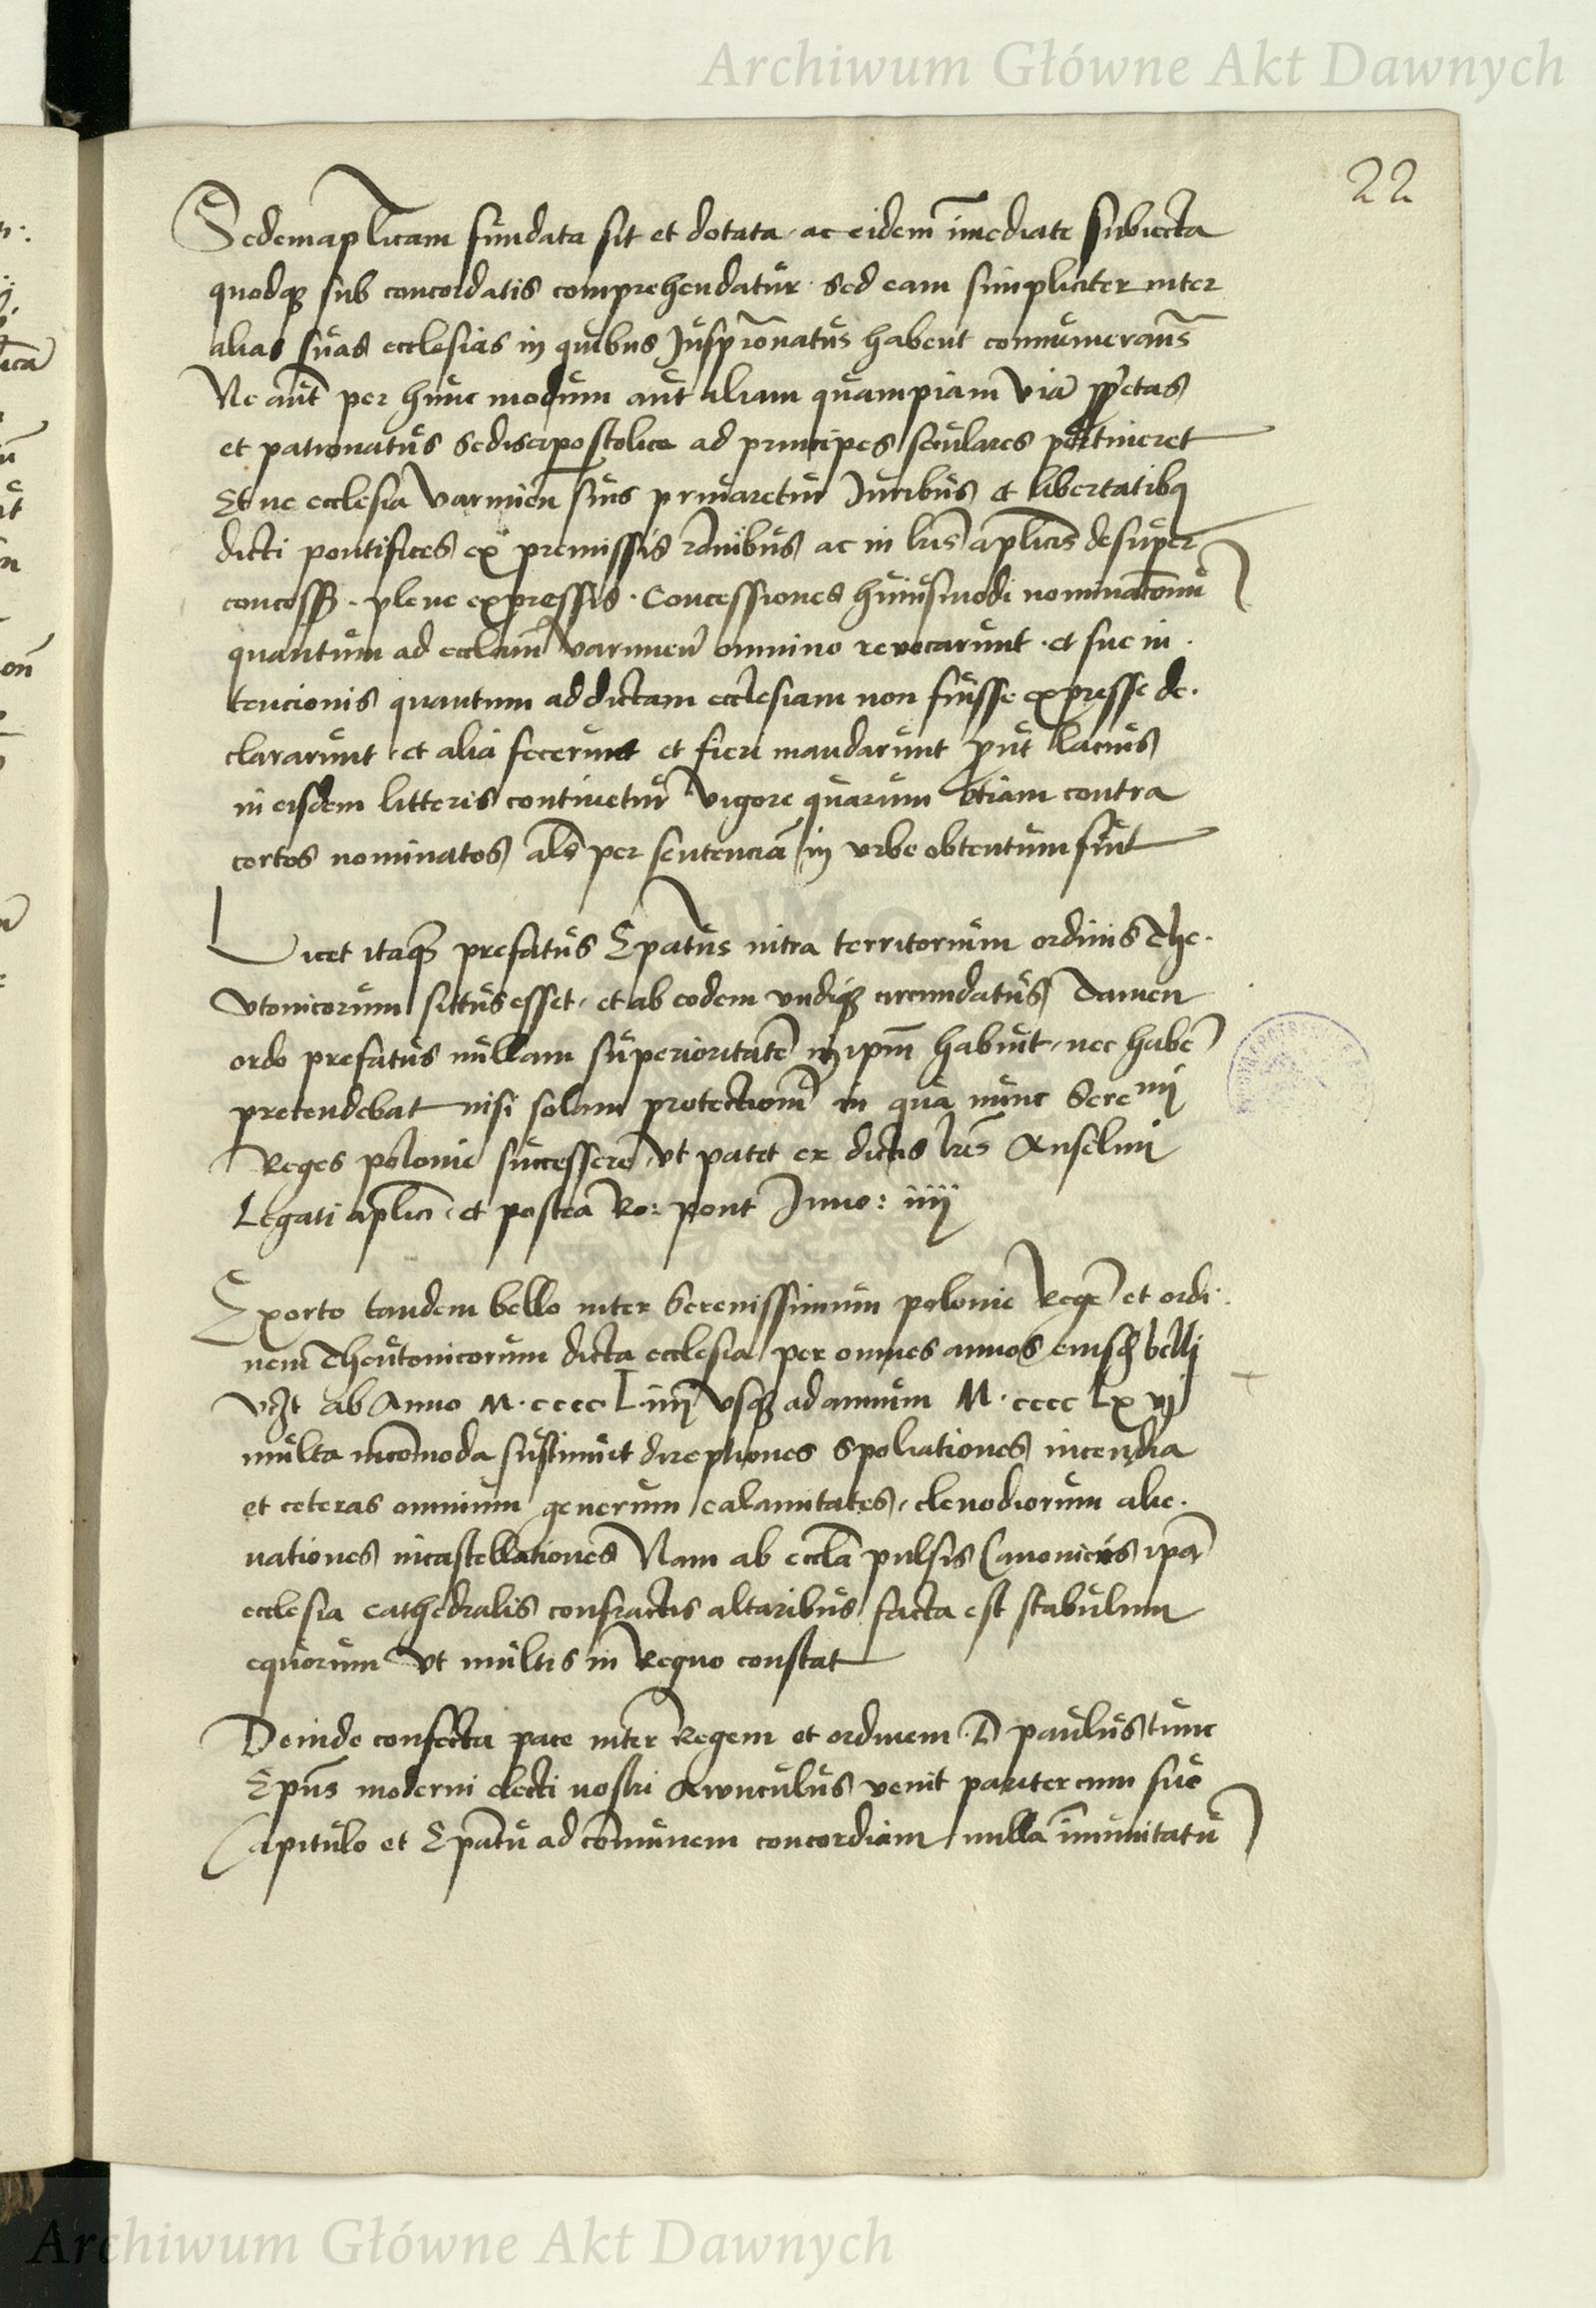 Archiwum Główne Akt Dawnych
22
Sedem aplicam fundata sit et dotata ac eidem imediate subiecta
quodq sub concordatis comprehendatur sed eam simpliciter inter
alias suas ecclesias in quibus Juspronatus habent connumerans
Ne aut per hunc modum aut aliam quampiam via
et patronatus sedis apostolice ad principes seculares pertineret
Et ne ecclesia varmien suis priuaretur Juribus et libertatibq
dicti pontifices ex premissis ronibus ac in lris aplicis desuper
concess. plene expressis. Concessiones huiusmodi nominationu
quantum ad eccliam varmien omnino revocarunt. et sue in.
tencionis quantum ad dictam ecclesiam non fuisse expresse de.
clararunt et alia fecerunt et fieri mandarunt put lacius
in eisdem litteris continetur vigore quarum etiam contra
certos nominatos als per sentencia in vrbe obtentum sunt
Licet itaq prefatus Epatus intra territorium ordinis The.
vtonicorum situs esset. et ab eodem vndiq circumdatus Tamen
ordo prefatus nullam superioritate in ipm habuit. nec habe
pretendebat nisi solum protectionem in qua nunc Sere mi
Reges polonie successere vt patet ex dictis lris Anselmi
Legati aplici. et postea Ro: pont Inno: iiij
Exorto tandem bello inter Serenissimum polonie Rege et ordi.
nem Theutonicorum dicta ecclesia per omnes annos eiusd belli
vzt Ab Anno M. cccc L iiij vsq ad annum M. cccc Lx vj
multa incomoda sustinuit direptiones spoliationes incendia
et ceteras omnium generum calamitates. clenodiorum alie.
nationes incastellationes Nam ab eccla pulsis Canonicis ipa
ecclesia cathedralis confractis altaribus facta est stabulum
equorum vt multis in Regno constat
Deinde confecta pace inter Regem et ordinem D paulus tunc
Epus moderni electi nostri Avunculus venit pariter cum suo
Capitulo et Epatu ad comunem concordiam nulla imunitatu
Archiwum Główne Akt Dawnych